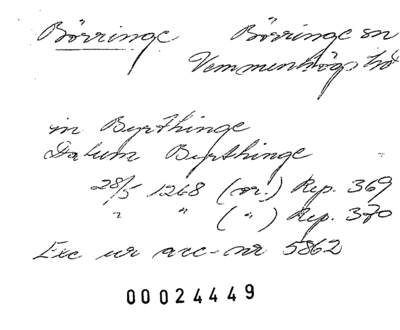 Börringe Börringe sn
Vemmenhögs hd
in Byrthinge
Datum Byrthinge
28/5 1268 (or.) Rep. 369
" " (") Rep. 370
Exc ur acc-nr 5862
00024449